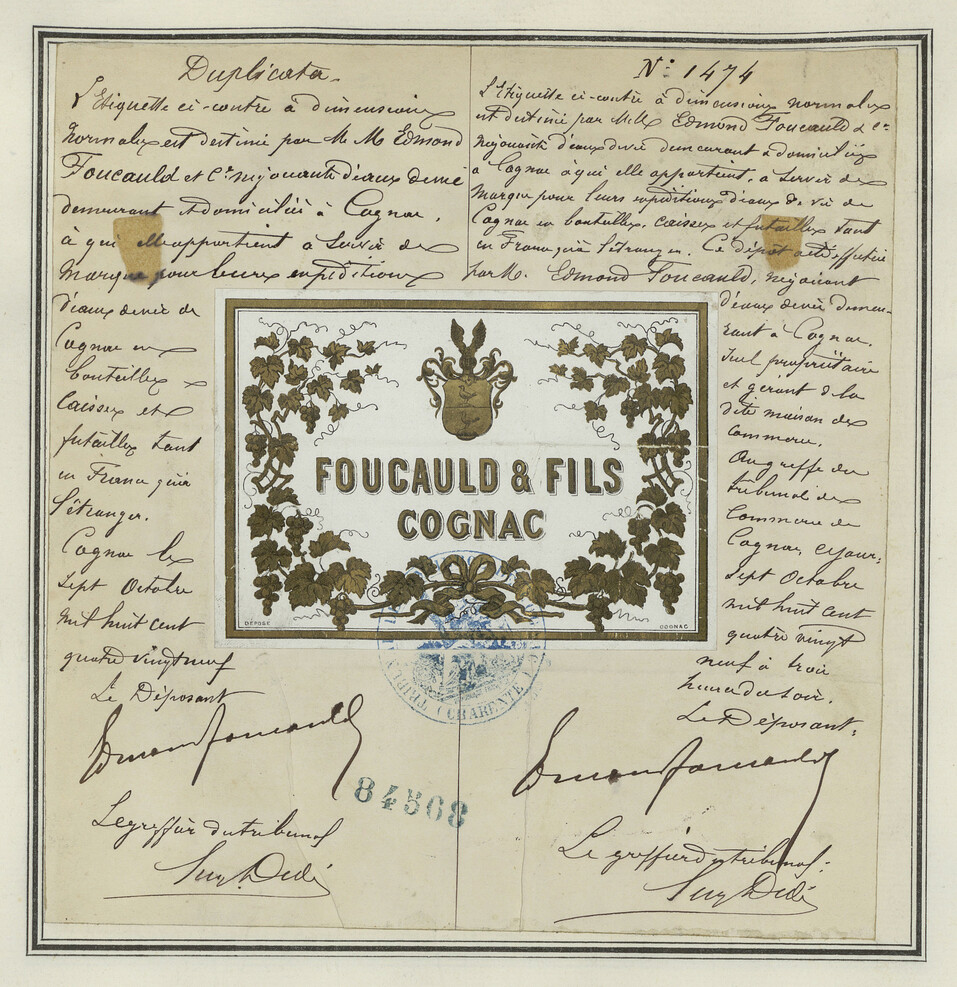 Duplicata
L'Etiquette ci-contre à dimensions
normales est destinée par M. M. Edmond
Foucauld et Cie négociants d'eaux de vie
demeurant & domiciliés à Cognac,
à qui elle appartient à servir de
marque pour leurs expéditions
d'eaux de vie de
Cognac en
bouteilles
caisses et
futailles tant
en France qu'à
l'étranger.
Cognac le
Sept Octobre
mil huit cent
quatre vingt neuf
Le Déposant
Edmond Foucauld
Le greffier du tribunal
N° 1474
L'Etiquette ci-contre à dimensions normales
est destinée par M. M. Edmond Foucauld & Cie
négociants d'eaux de vie demeurant & domiciliés
à Cognac à qui elle appartient, à servir de
marque pour leurs expéditions d'eaux de vie de
Cognac en bouteilles, caisses et futailles tant
en France qu'à l'étranger. Ce dépôt a été effectué
par M. Edmond Foucauld, négociant
d'eaux de vie demeu-
rant à Cognac,
seul propriétaire
et gérant de la
dite maison de
commerce.
Au greffe du
tribunal de
Commerce de
Cognac, ce jour,
sept Octobre
mil huit cent
quatre vingt
neuf à trois
heures du soir.
Le Déposant,
Edmond Foucauld
Le greffier du tribunal,
FOUCAULD & FILS
COGNAC
DÉPOSÉ
COGNAC
(CHARENTE)
84568